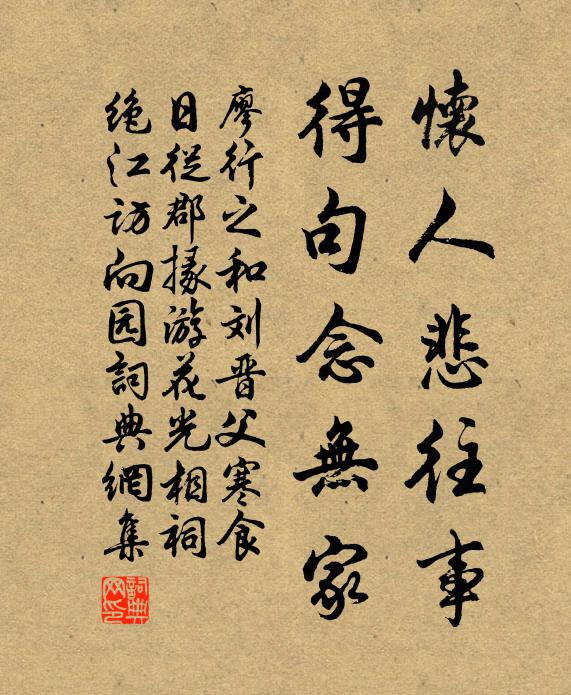 懷人悲往事
得句念無家
廖行之和刘晋父寒食
日從郡掾游花光相祠
絶江訪向园詞典網集
詞典网印